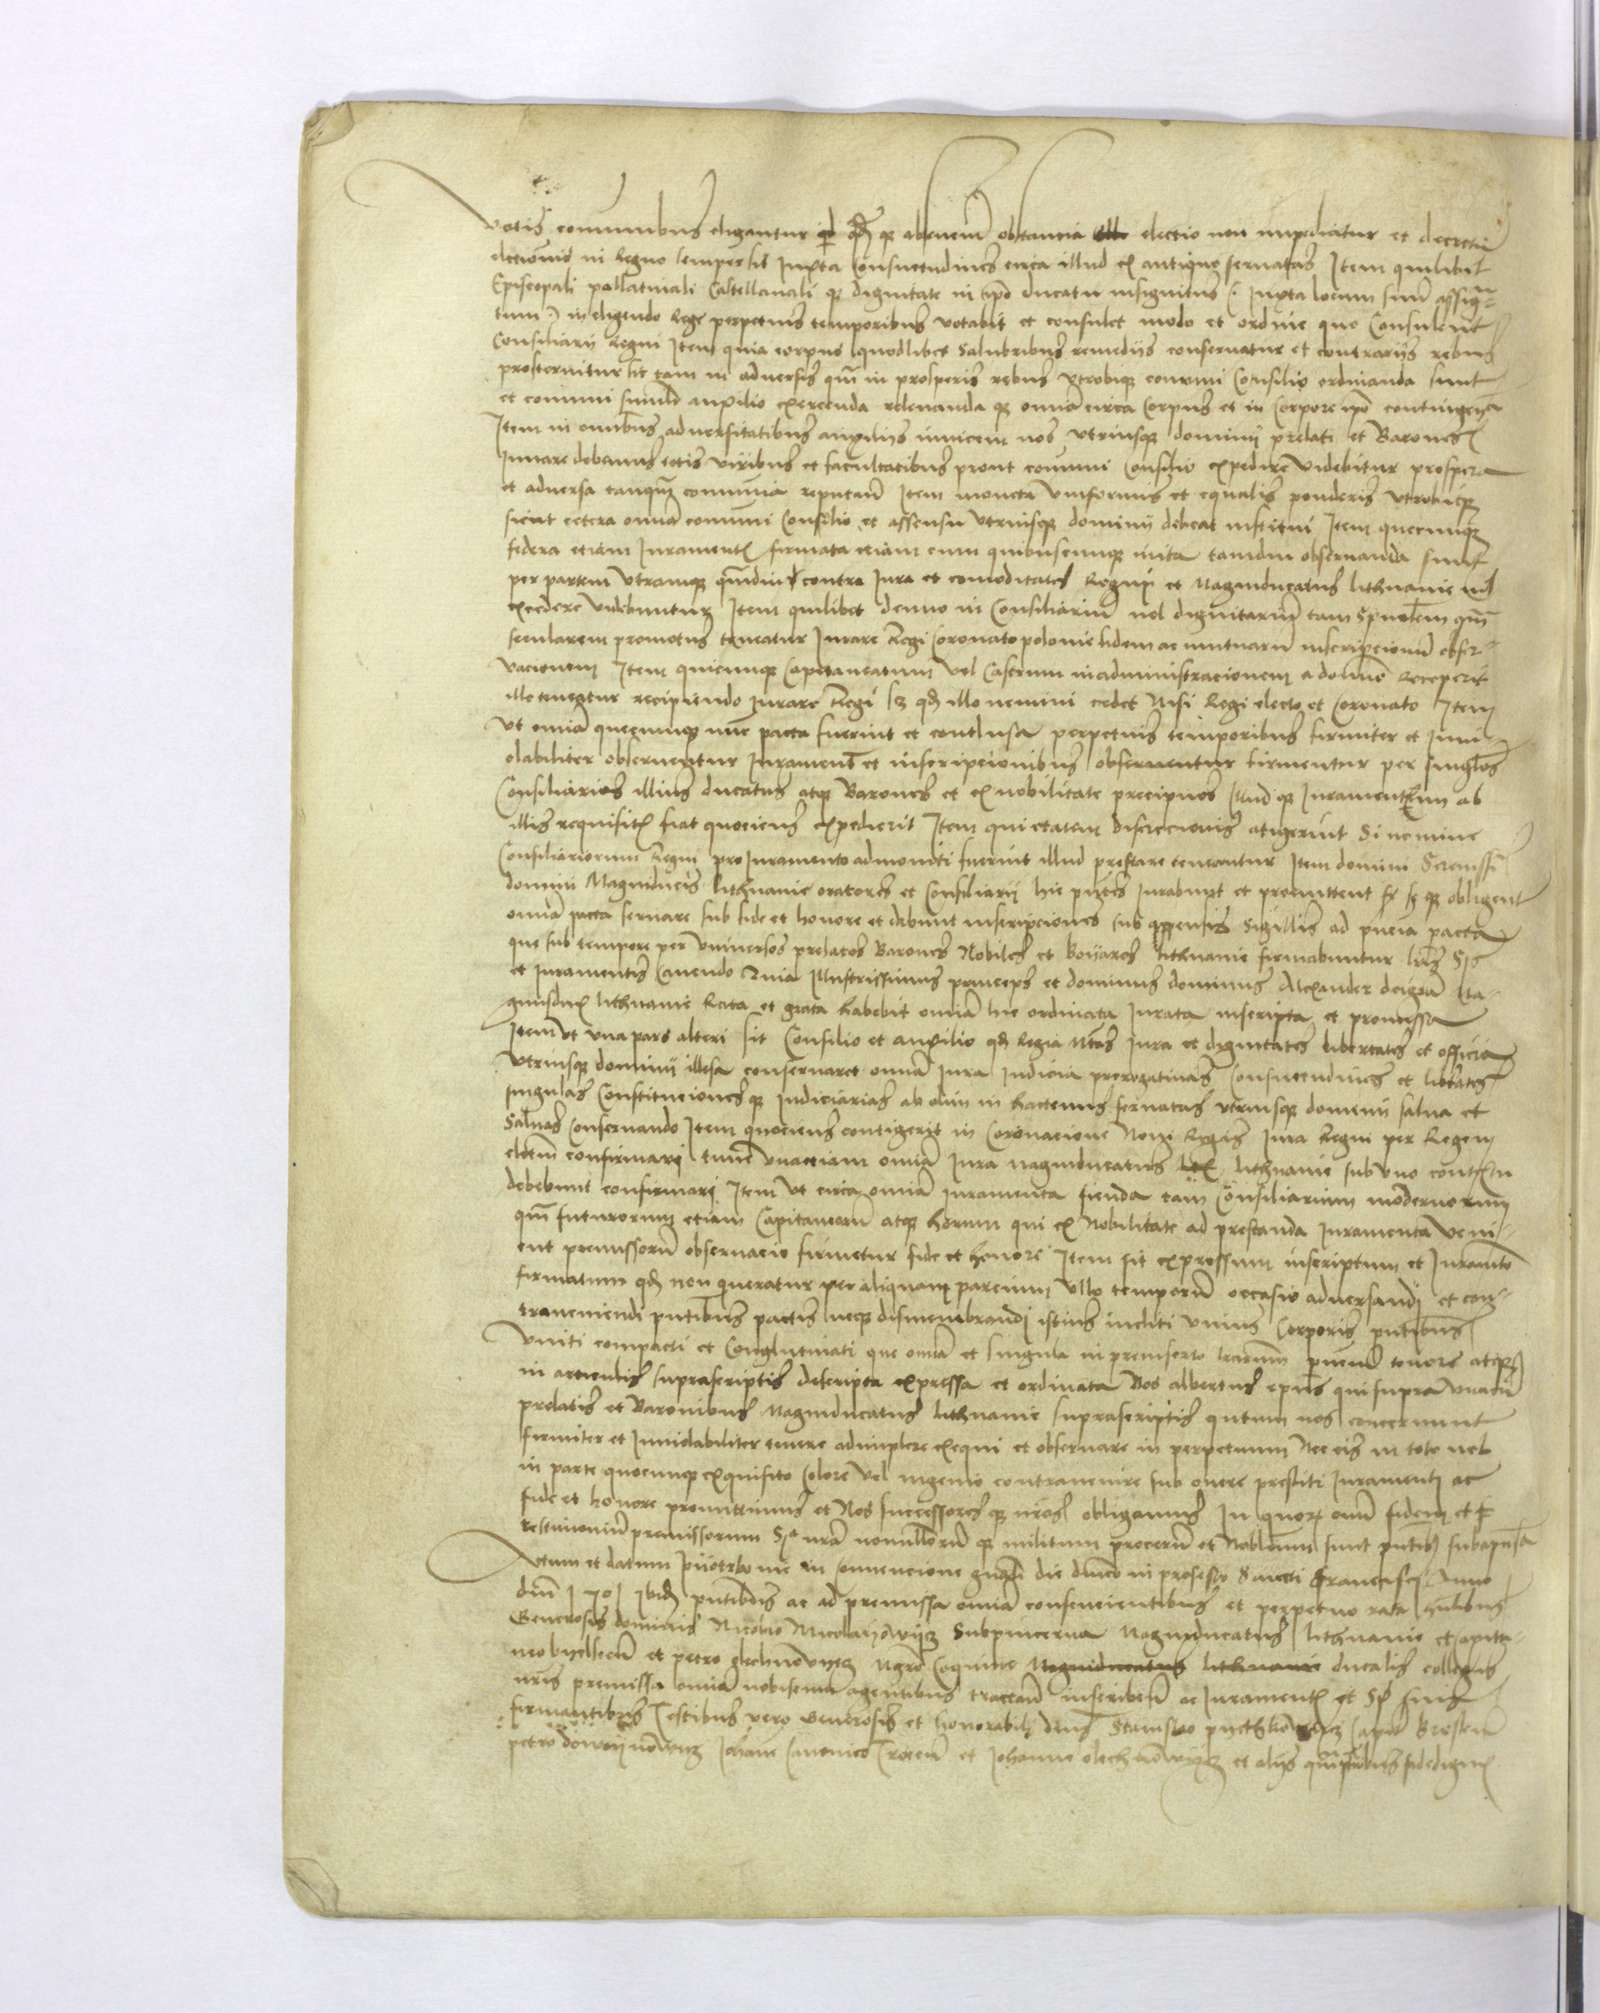 votis comunibus eligantur qd qz absencium obstancia electio non impediatur et decretū
electionis in Regno semper sit Juxta Consuetudines circa illud ex antiquo servatas Item quilibet
Episcopali pallatinali Castellanali qz dignitate in ipō ducatu insignitus Juxta locum suū assigna
tum in eligendo Rege perpetuis temporibus votabit et consulet modo et ordine quo Consulent
Consiliarij Regni Item quia corpus quodlibet salubribus remedijs conservatur et contrarijs rebus
prosternitur sic tam in adversis qm̄ in prosperis rebus utrobique comuni Consilio ordinanda sunt
et comuni simul auxilio exercenda relevanda qz omnia circa Corpus et in Corpore ipō contingēcia
Item in omibus adversitatibus auxilijs invicem nos utriusqz dominij prelati et Barones
Juvare debemus totis viribus et facultatibus prout comuni Consilio expedire videbitur prospera
et adversa tanqm̄ comunia reputan̄ Item moneta uniformis et equalis ponderis utrobiqz
sicut cetera omnia comuni Consilio et assensu utriusqz dominij debeat institui Item quecumqz
federa etiam Jurament firmata etiam cum quibuscumqz inita tamdiu observanda sunt
per partem utramqz qm̄diu contra Jura et comoditates Regni et Magniducatus lithuanie nil
excedere videbuntur Item quilibet denuo in Consiliariū vel dignitariū tam Spūalem qm̄
secularem promotus teneatur Jurare Regi Coronato polonie fidem ac mutuarū inscripcionū obser
vacionem Item quicumqz Capitaneatum vel Castrum in administracionem a dolmō Receperit
ille teneatur recipiendo Jurare Regi sz qd illo nemini cedet Nisi Regi electo et Coronato Item
Ut omia quecumqz nūc pacta fuerint et conclusa perpetuis temporibus firmiter et Invi
olabiliter observentur Jurament et inscripcionibus observentur firmentur per singlos
Consiliarios illius ducatus atqz Barones et ex nobilitate precipuos Illud qz Jurament ab
illis requisit fiat quociens expedierit Item qui etatem discrecionis atigerint Si nomine
Consiliariorum Regni pro Juramento admoniti fuerint illud prestare teneantur Item domini Serenissi
domini Magniducis lithuanie oratores et Consiliarij hic pntes Jurabunt et promittent se qz obligent
omia pacta servare sub fide et honore et dabunt inscripciones sub appensis Sigillis ad pncia pacta
que sub tempore per Universos prelatos Barones Nobiles et Boyares lithuanie firmabuntur lris
et Juramentis Cavendo Quia Illustrissimus princeps et dominus dominus Alexander dei gra Ma
gnusdux lithuanie Rata et grata habebit omia hic ordinata Jurata inscripta et promissa
Item ut una pars alteri sit Consilio et auxilio qd Regia Mtas Jura et dignitates libertates et officia
Utriusqz dominij illesa conservaret omia Jura Judicia prerogativas Consuetudines et libtates
singulas Constituciones qz Judiciarias ab olim in hactenus servatas utriusqz dominij salva et
salvas Conservando Item quociens contigerit in Coronacione Novi Regis Jura Regni per Regem
electū confirmari tunc una etiam omia Jura magniducatus lithuanie sub uno contextu
debebunt confirmari Item Ut circa omia Juramenta fienda tam Consiliariorum modernorum
qm̄ futurorum etiam Capitaneorū atqz horum qui ex Nobilitate ad prestanda Juramenta veni
ent premissorū observacio firmetur fide et honore Item sit expressum inscriptum et Juramto
firmatum qd non queratur per aliquam parcium Ullo temporū occasio adversandi et con
traveniendi pntibus pactis neqz dismembrandi istius incliti unius Corporis pntibus
Uniti compacti et Conglutinati que omia et singula in preinserto lrarum pncium tenore atqz
in articulis suprascriptis descripta expressa et ordinata Nos albertus epus qui supra unacū
prelatis et Baronibus magniducatus lithuanie suprascriptis qntum nos concernunt
firmiter et Inviolabiliter tenere adimplere exequi et observare in perpetuum Nec eis in toto vel
in parte quocumqz exquisito Colore vel ingenio contravenire sub onere prestiti Juramenti ac
fide et honore promittimus et Nos Successores qz nros obligamus In quorz omū fidem et
testimoniū premissorum Sa nra nonullorū qz militum procerū et Nobilium sunt pntibz subapnsa
Actum et datum Pijotrkowie in Convencione gnali die dnico in profesto Sancti Francisci Anno
dni 1501 Ibidem pntibus ac ad premissa omia consencientibus et perpetuo rata hntibus
Generosis dominis Nicolao Nicolaijowijcz Subpincerna Magniducatus lithuanie et Capita
neo bijelscen̄ et petro olechnowicz mgro Coquine Magniducatus lithuanie ducalis collegis
nris premissa omia nobiscum agentibus tractan̄ inscriben̄ ac Jurament et
firmantibus Testibus vero Generosis et honorabil dnis Stanislao Capit Bresten
petro Canonico Trocen et Johanne olechnowijcz et alijs qm pluribus fidedignis